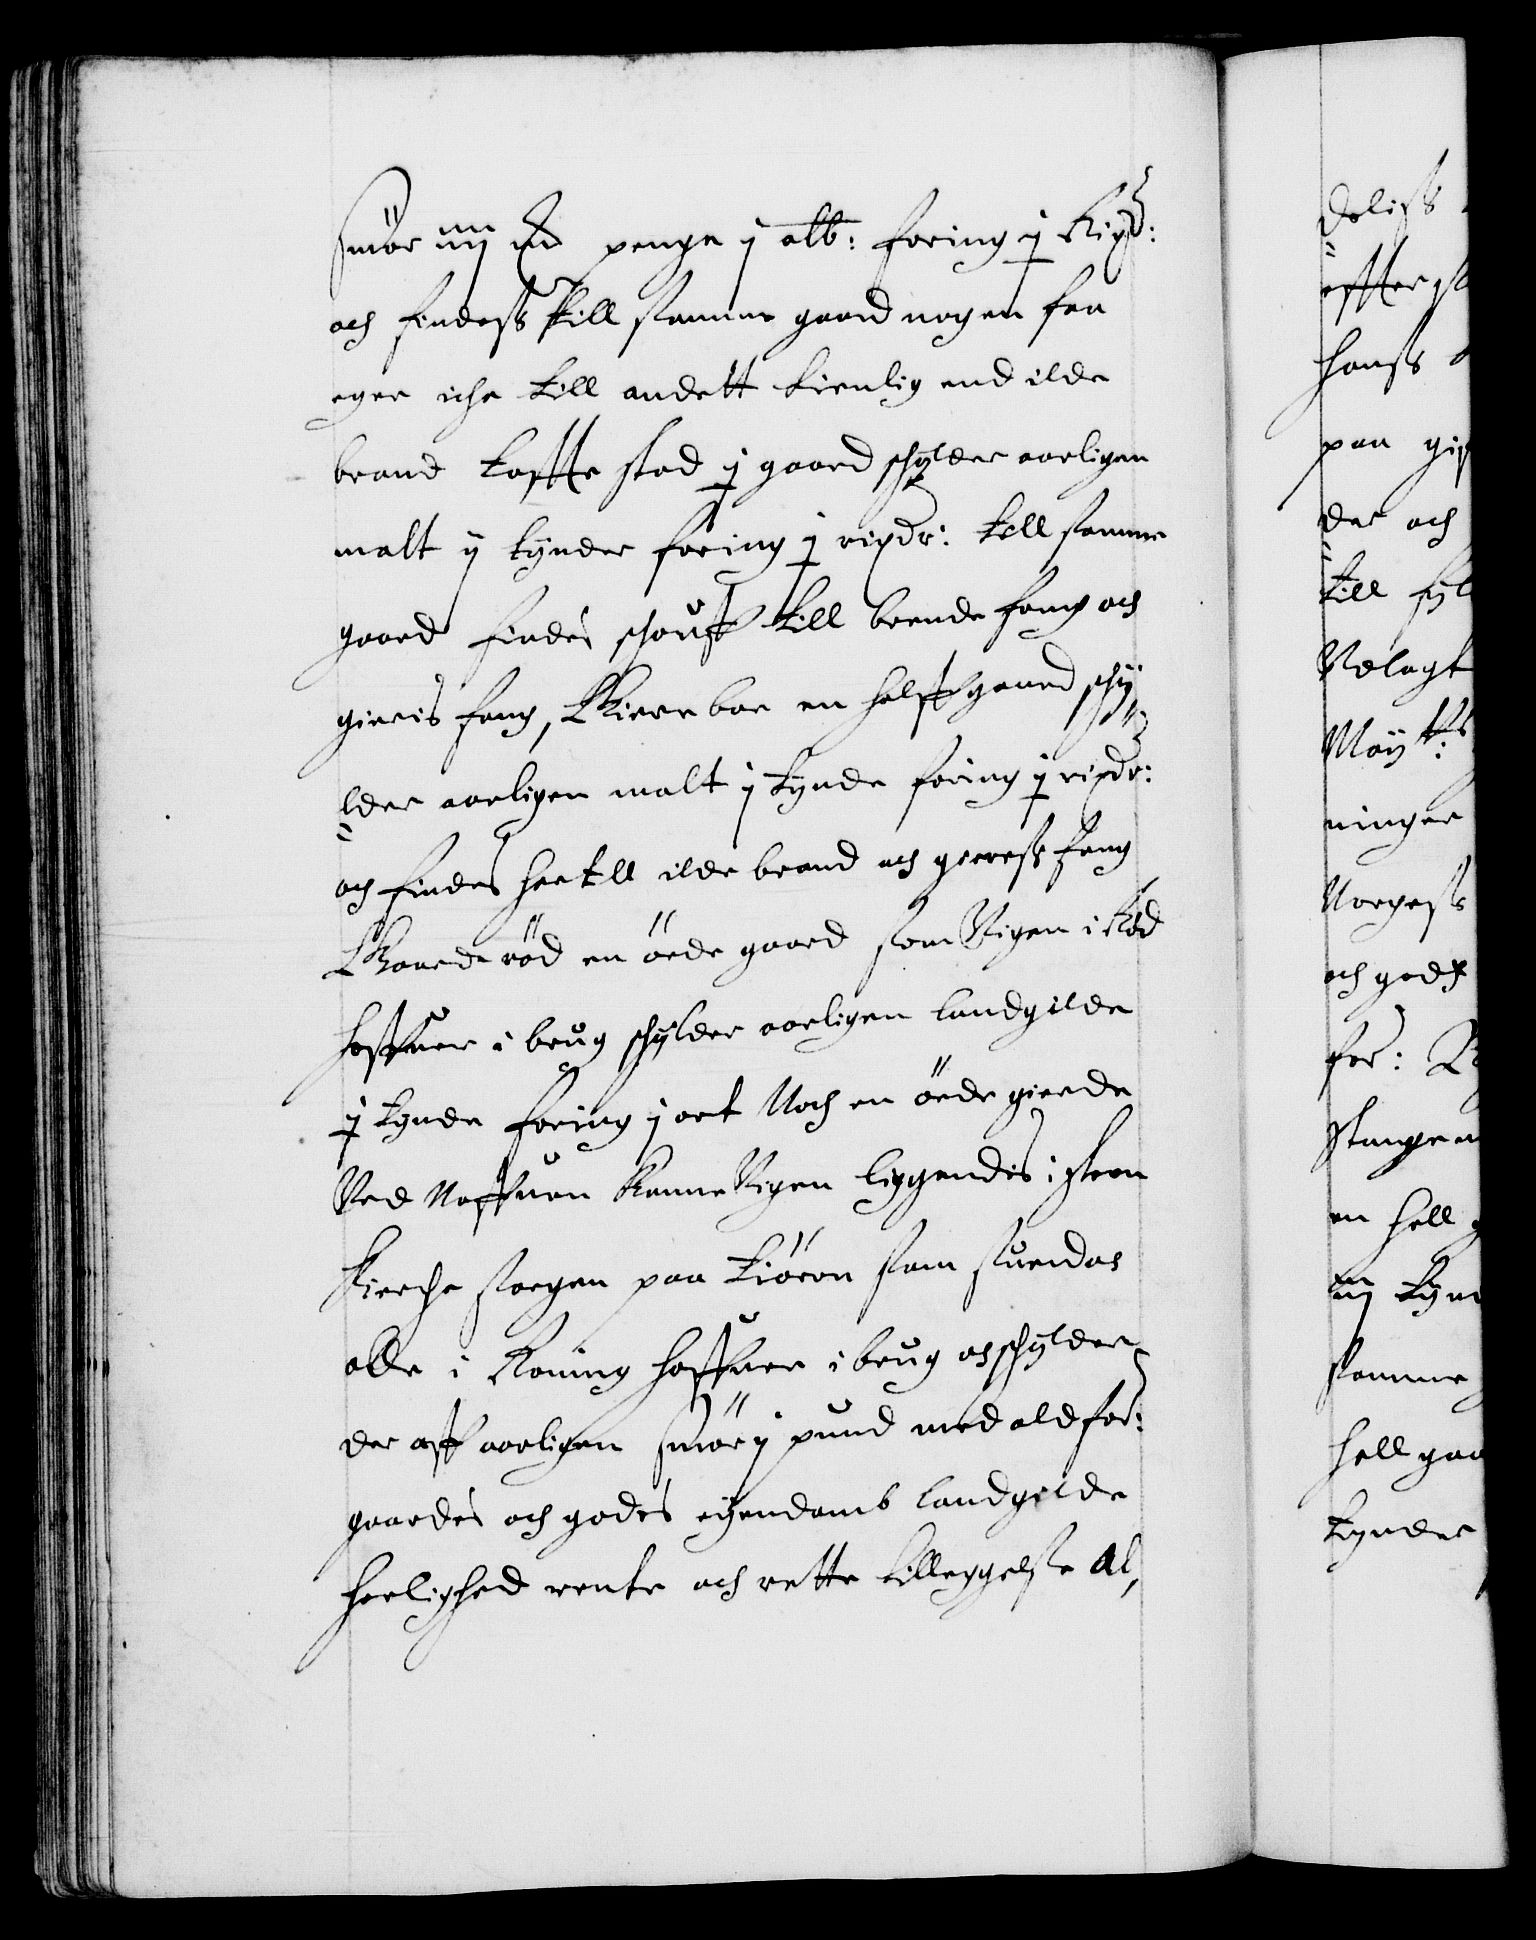 Smör iiij pd penge j alb: foring j Rixd:
och findess till samme gaard nogen faa
eger iche till andett tienlig end ilde
brand Tofftestad j gaard schylder aarligen
malt ij tynder foring j rixdr: till samme
gaard findes schouff till brende fang och
gieris fang, Kierre boe en halff gaard schÿ
lder aarligen malt j tynde foring j rixdr:
och findes her till ilde brand och gieress fang
en öede gaard som Vigen i
haffuer i brug schylder aarligen landgilde
j tynde foring j ort Noch en öede gierde
Ved Naffuen Vigen liggendis i
Kierche sorgen paa Tiören som
alle i Koning haffuer i brug och schylder
der aff aarligen smör j pund med ald for:
gaardes och godes eyendomb landgilde
herlighed rente och rette tilleggelse Al,
deliss
effter
hanss
paa
der och
till
Velagt
May:tts
ninger
Norgess
och godz
for:
Stange
en hell
iij tyn
samme
hell gaa
tynder